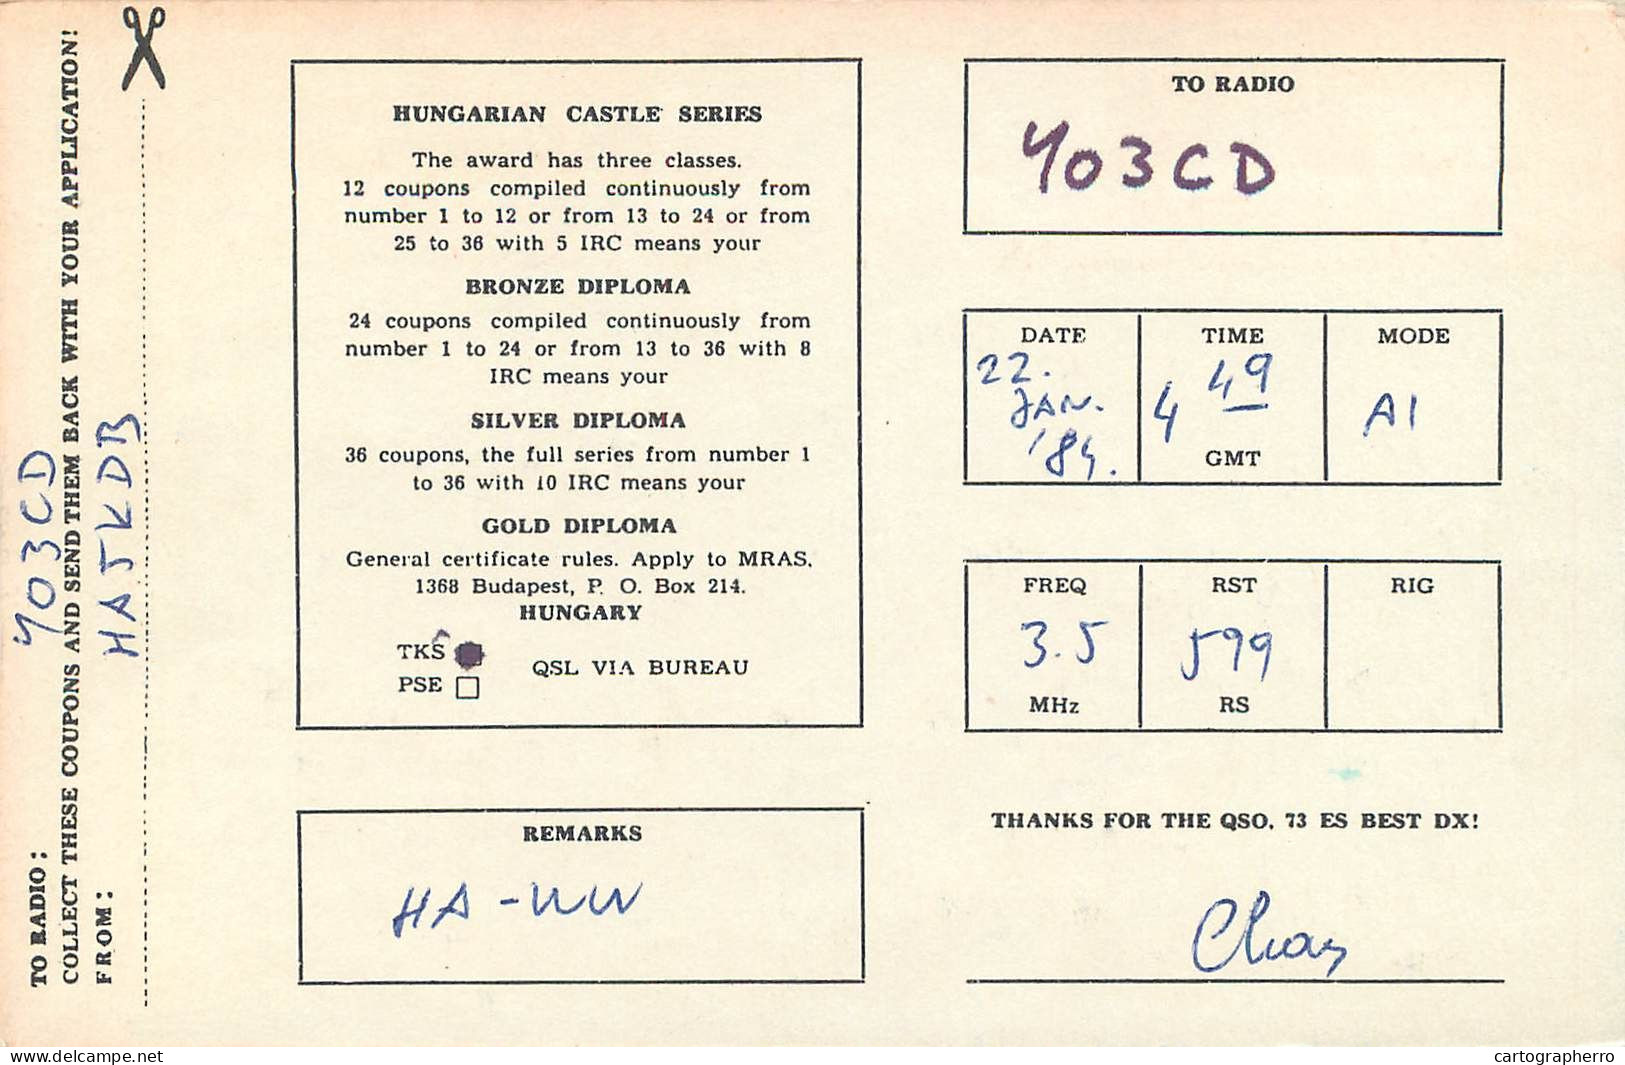 TO RADIO: YO3CD
COLLECT THESE COUPONS AND SEND THEM BACK WITH YOUR APPLICATION!
FROM: HA5KDB
HUNGARIAN CASTLE SERIES
The award has three classes.
12 coupons compiled continuously from
number 1 to 12 or from 13 to 24 or from
25 to 36 with 5 IRC means your
BRONZE DIPLOMA
24 coupons compiled continuously from
number 1 to 24 or from 13 to 36 with 8
IRC means your
SILVER DIPLOMA
36 coupons, the full series from number 1
to 36 with 10 IRC means your
GOLD DIPLOMA
General certificate rules. Apply to MRAS.
1368 Budapest, P. O. Box 214.
HUNGARY
TKS
PSE
QSL VIA BUREAU
REMARKS
HA-WW
TO RADIO
YO3CD
DATE TIME MODE
22. JAN. '84. 4 49 A1
GMT
FREQ RST RIG
3.5 599
MHz RS
THANKS FOR THE QSO. 73 ES BEST DX!
delcampe.net
cartographerro